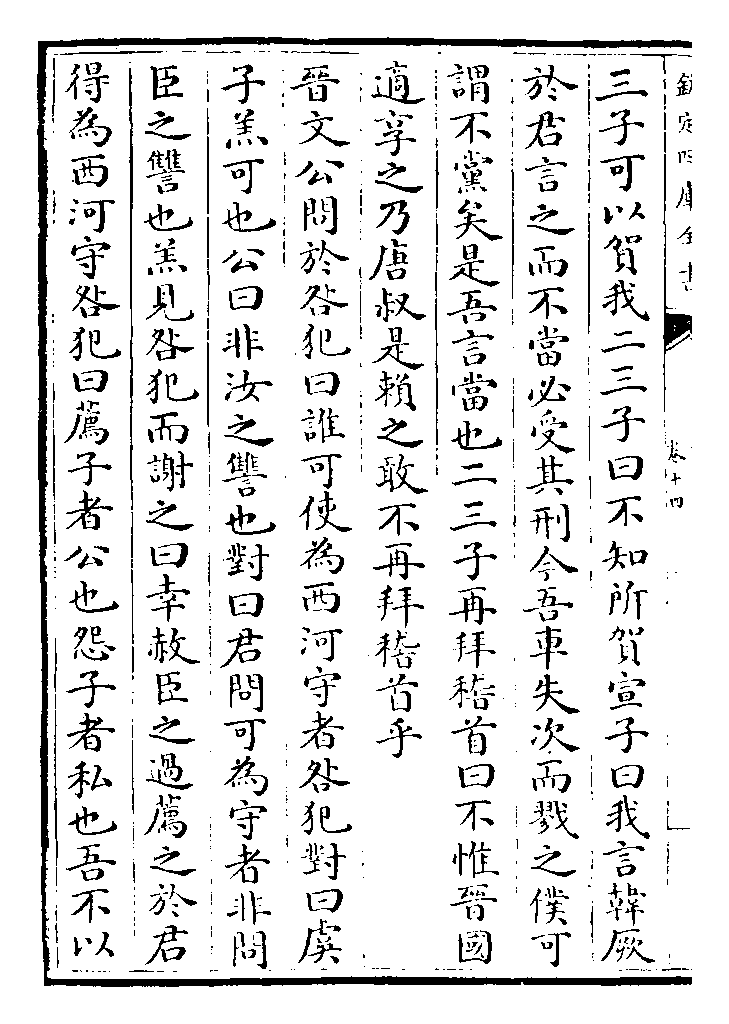 欽定四庫全書
卷十四
三子可以賀我二三子曰不知所賀宣子曰我言韓厥
於君言之而不當必受其刑今吾車失次而戮之僕可
謂不黨矣是吾言當也二三子再拜稽首曰不惟晉國
適享之乃唐叔是賴之敢不再拜稽首乎
晉文公問於咎犯曰誰可使為西河守者咎犯對曰虞
子羔可也公曰非汝之讐也對曰君問可為守者非問
臣之讐也羔見咎犯而謝之曰幸赦臣之過薦之於君
得為西河守咎犯曰薦子者公也怨子者私也吾不以